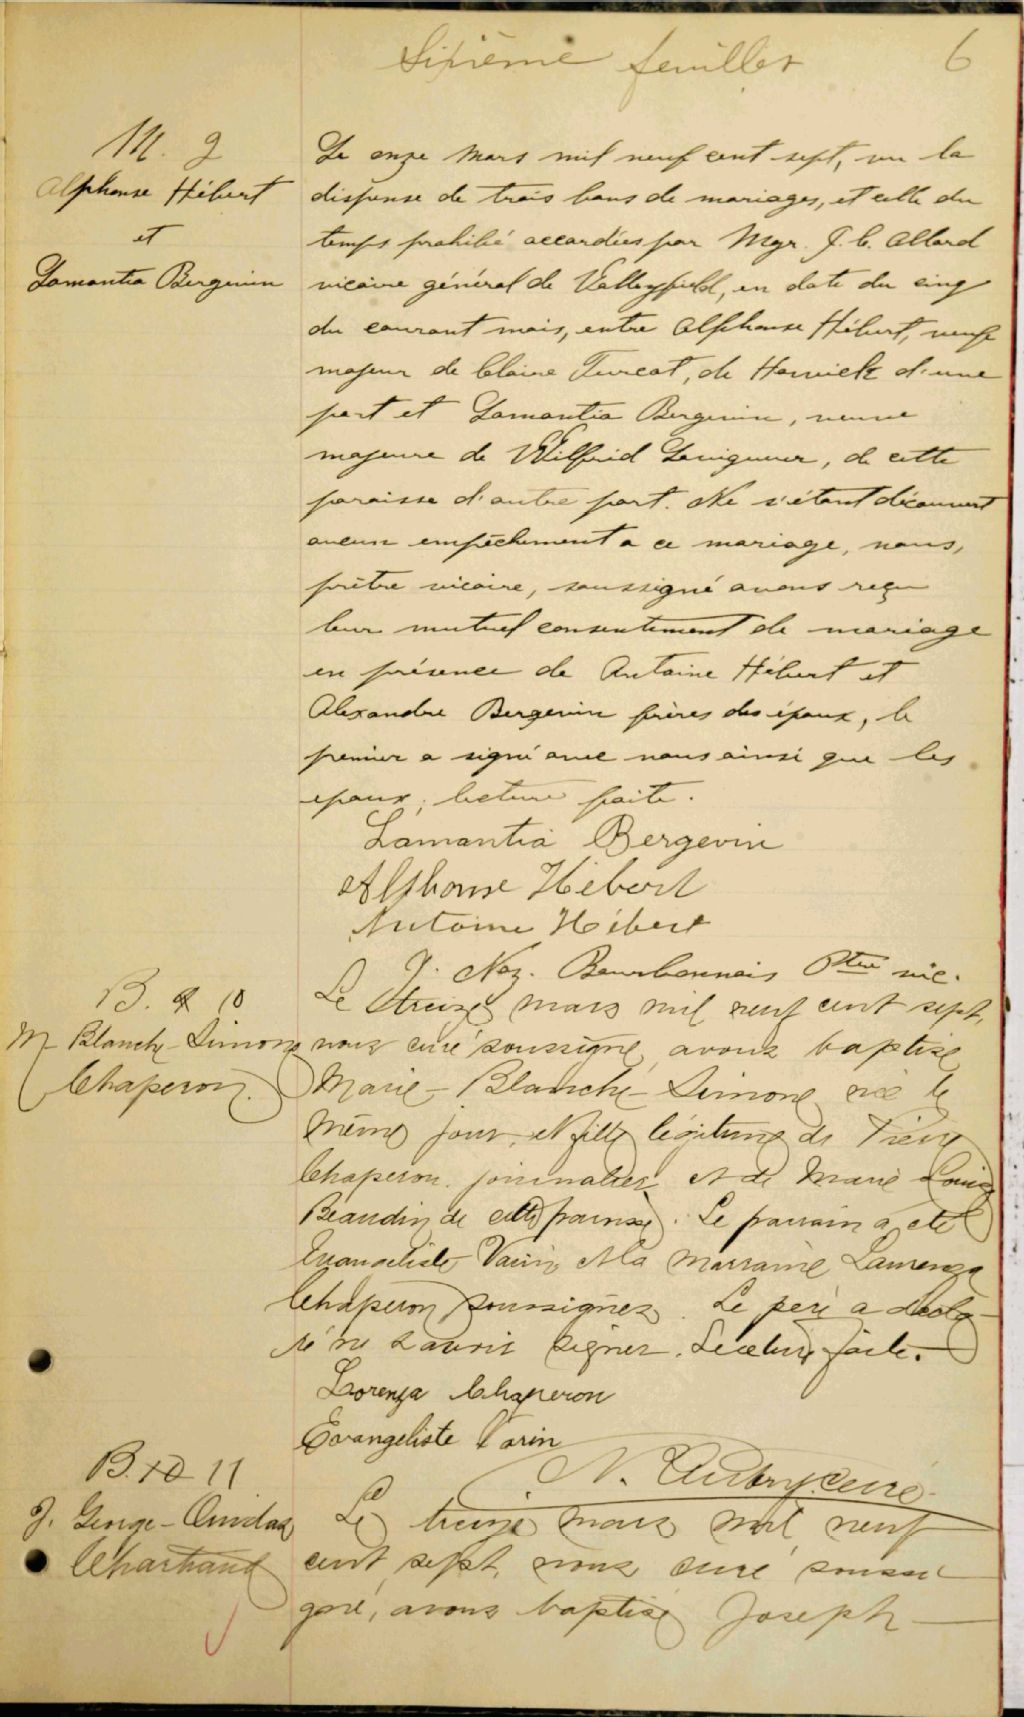 Sixième feuillet 6
M. 2
Alphonse Hébert
et
Lamantia Bergevin
Le onze mars mil neuf cent sept, vu la
dispense de trois bans de mariages, et celle du
temps prohibé accordées par Mgr. J. C. Allard
vicaire général de Valleyfield, en date du cinq
du courant mois, entre Alphonse Hébert, veuf
majeur de Claire Turcot, de Howick d'une
part et Lamantia Bergevin, veuve
majeure de Wilfrid Lauigueur, de cette
paroisse d'autre part. Ne s'étant découvert
aucun empêchement a ce mariage, nous,
prêtre vicaire, soussigné avons reçu
leur mutuel consentement de mariage
en présence de Antoine Hébert et
Alexandre Bergevin frères des époux, le
premier a signé avec nous ainsi que les
epoux; lecture faite.
Lamantia Bergevin
Alphonse Hébert
Antoine Hébert
J. Naz. Bourbonnais Ptre vic.
B. 10
M- Blanche-Simone
Chaperon.
Le treize mars mil neuf cent sept,
nous curé soussigné, avons baptisé
Marie-Blanche-Simone, née le
même jour, et fille légitime de Pierre
Chaperon journalier et de Marie Louise
Beaudin de cette paroisse. Le parrain a été
Evangeliste Varin, et la marraine Laurenza
Chaperon soussignés. Le père a décla-
ré ne savoir signer. Lecture faite.
Lorenza Chaperon
Evangeliste Varin
N. Aubry, curé
B. 11
J. George-Ovidas
Chartrand
Le treize mars mil neuf
cent sept, nous curé soussi-
gné, avons baptisé Joseph